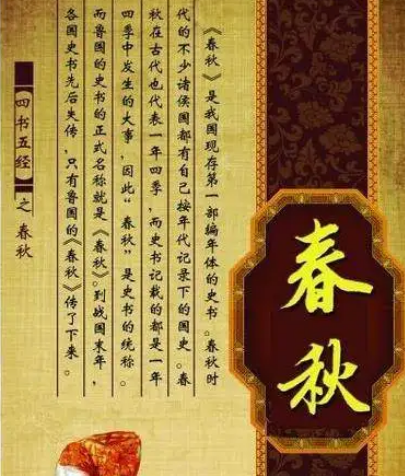 春秋
《春秋》是我国现存第一部编年体的史书。春秋时
代的不少诸侯国都有自己按年代记录下的国史。春
秋在古代也代表一年四季，而史书记载的都是一年
四季中发生的大事，因此“春秋”是史书的统称。
而鲁国的史书的正式名称就是《春秋》。到战国末年，
各国史书先后失传，只有鲁国的《春秋》传了下来。
【四书五经】之春秋